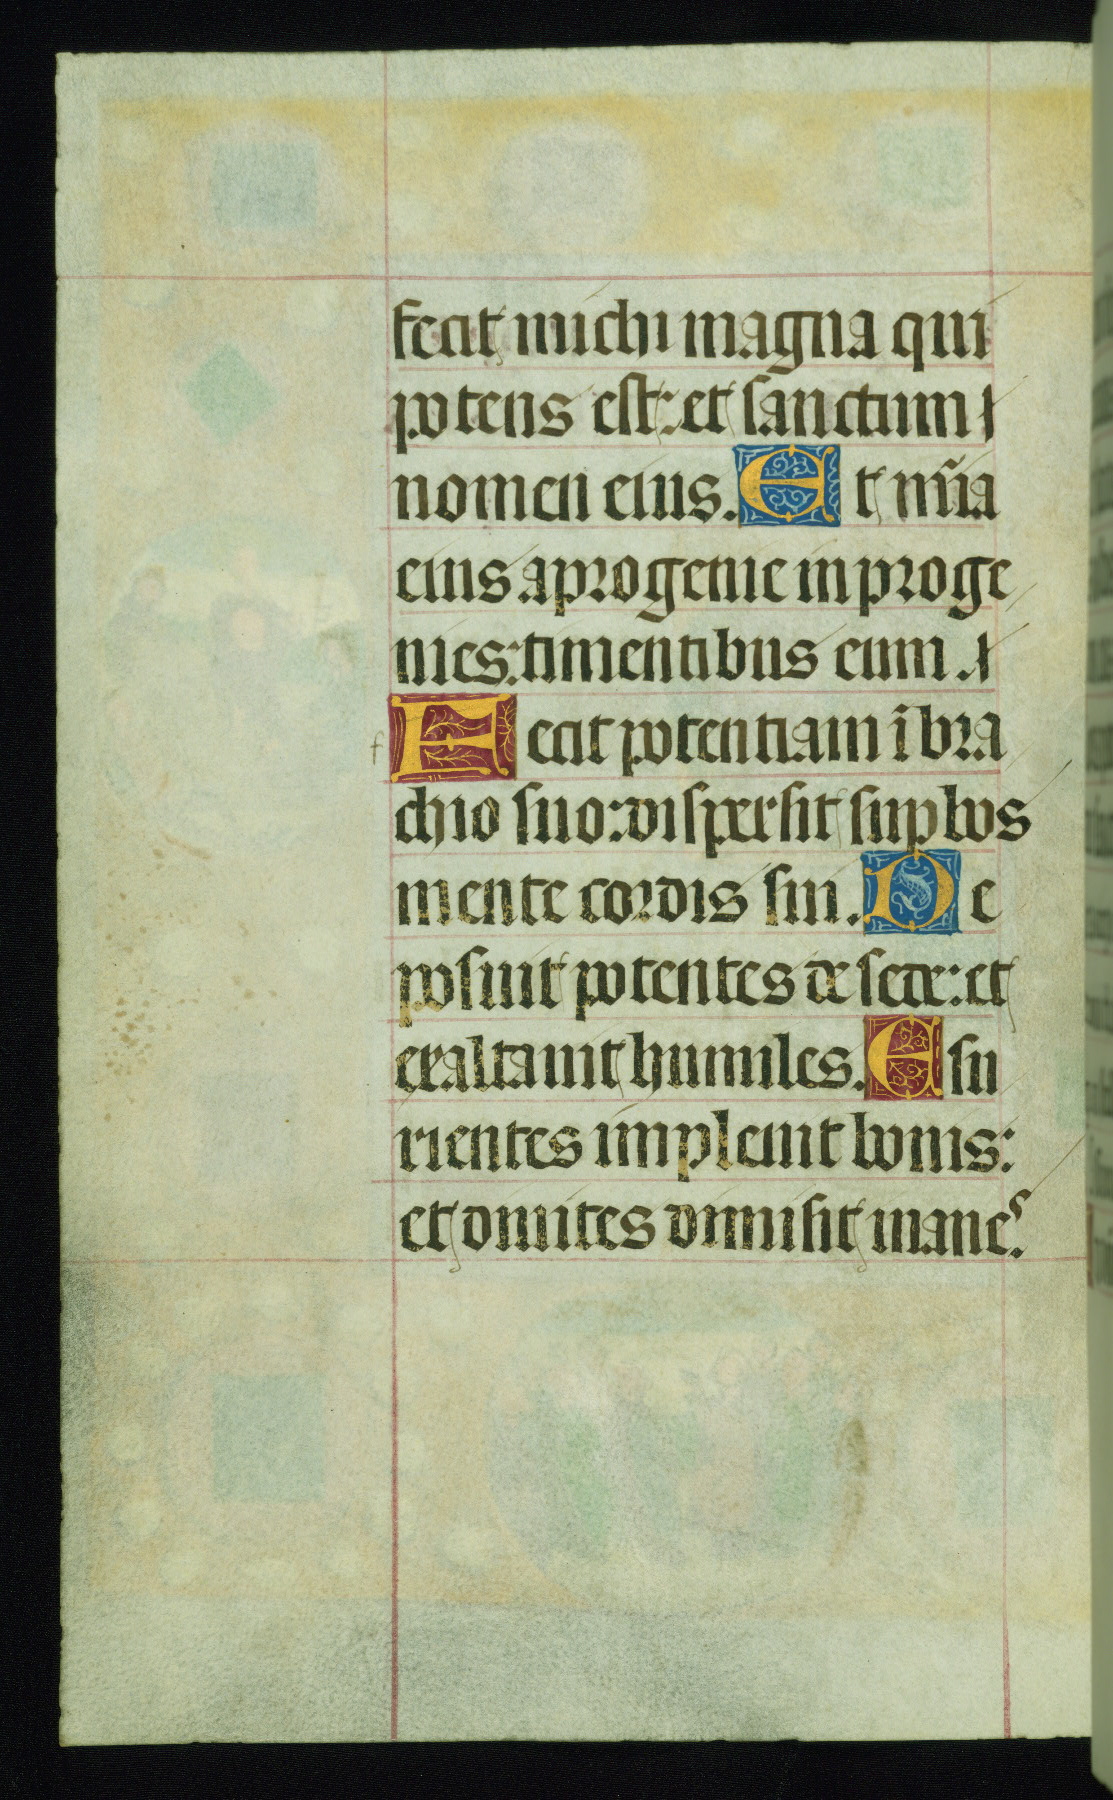 fecit michi magna qui
potens est: et sanctum
nomen eius. Et mr̃ia
eius a progenie in proge
nies: timentibus eum.
f Fecit potentiam ĩ bra
chio suo: dispersit suꝑbos
mente cordis sui. De
posuit potentes de sede: et
exaltauit humiles. Esu
rientes impleuit bonis:
et diuites dimisit inanes.